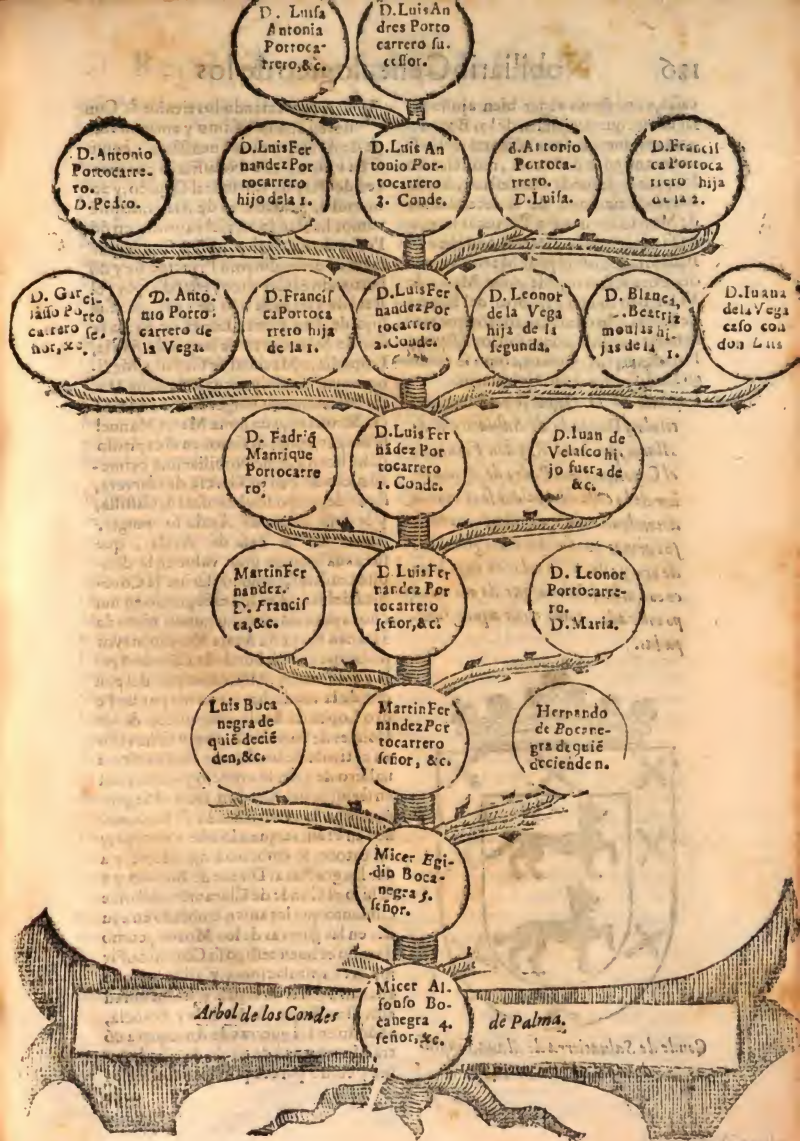 D. Luisa
Antonia
Portoca-
rrero, &c.
D. Luis An
dres Porto
carrero su.
cessor.
D. Antonio
Portocarre-
ro.
D. Pedro.
D. Luis Fer
nandez Por
tocarrero
hijo dela 1.
D. Luis An
tonio Por-
tocarrero
3. Conde.
d. Antonio
Portoca-
rrero.
D. Luisa.
D. Francis
ca Portoca
rrero hija
de la 2.
D. Garci
lasso Porto
carrero se.
ñor, &c.
D. Anto.
nio Porto
carrero de
la Vega.
D. Francis
ca Portoca
rrero hija
de la 1.
D. Luis Fer
nandez Por
tocarrero
2. Conde.
D. Leonor
de la Vega
hija de la
segunda.
D. Blanca,
Beatriz
monjas hi-
jas de la 1.
D. Iuana
dela Vega
caso con
don Luis
D. Fadriq̃
Manrique
Portocarre
ro.
D. Luis Fer
nãdez Por
tocarrero
1. Conde.
D. Iuan de
Velasco hi-
jo fuera de
&c.
Martin Fer
nandez.
D. Francis
ca, &c.
D Luis Fer
nandez Por
tocarrero
señor, &c.
D. Leonor
Portocarre-
ro.
D. Maria.
Luis Boca
negra de
quiẽ decié
den, &c.
Martin Fer
nandez Por
tocarrero
señor, &c.
Hernando
de Bocane-
gra de quiẽ
decienden.
Micer Egi-
dio Boca-
negra 5.
señor.
Micer Al.
fonso Bo-
canegra 4.
señor, &c.
Arbol de los Condes
de Palma.